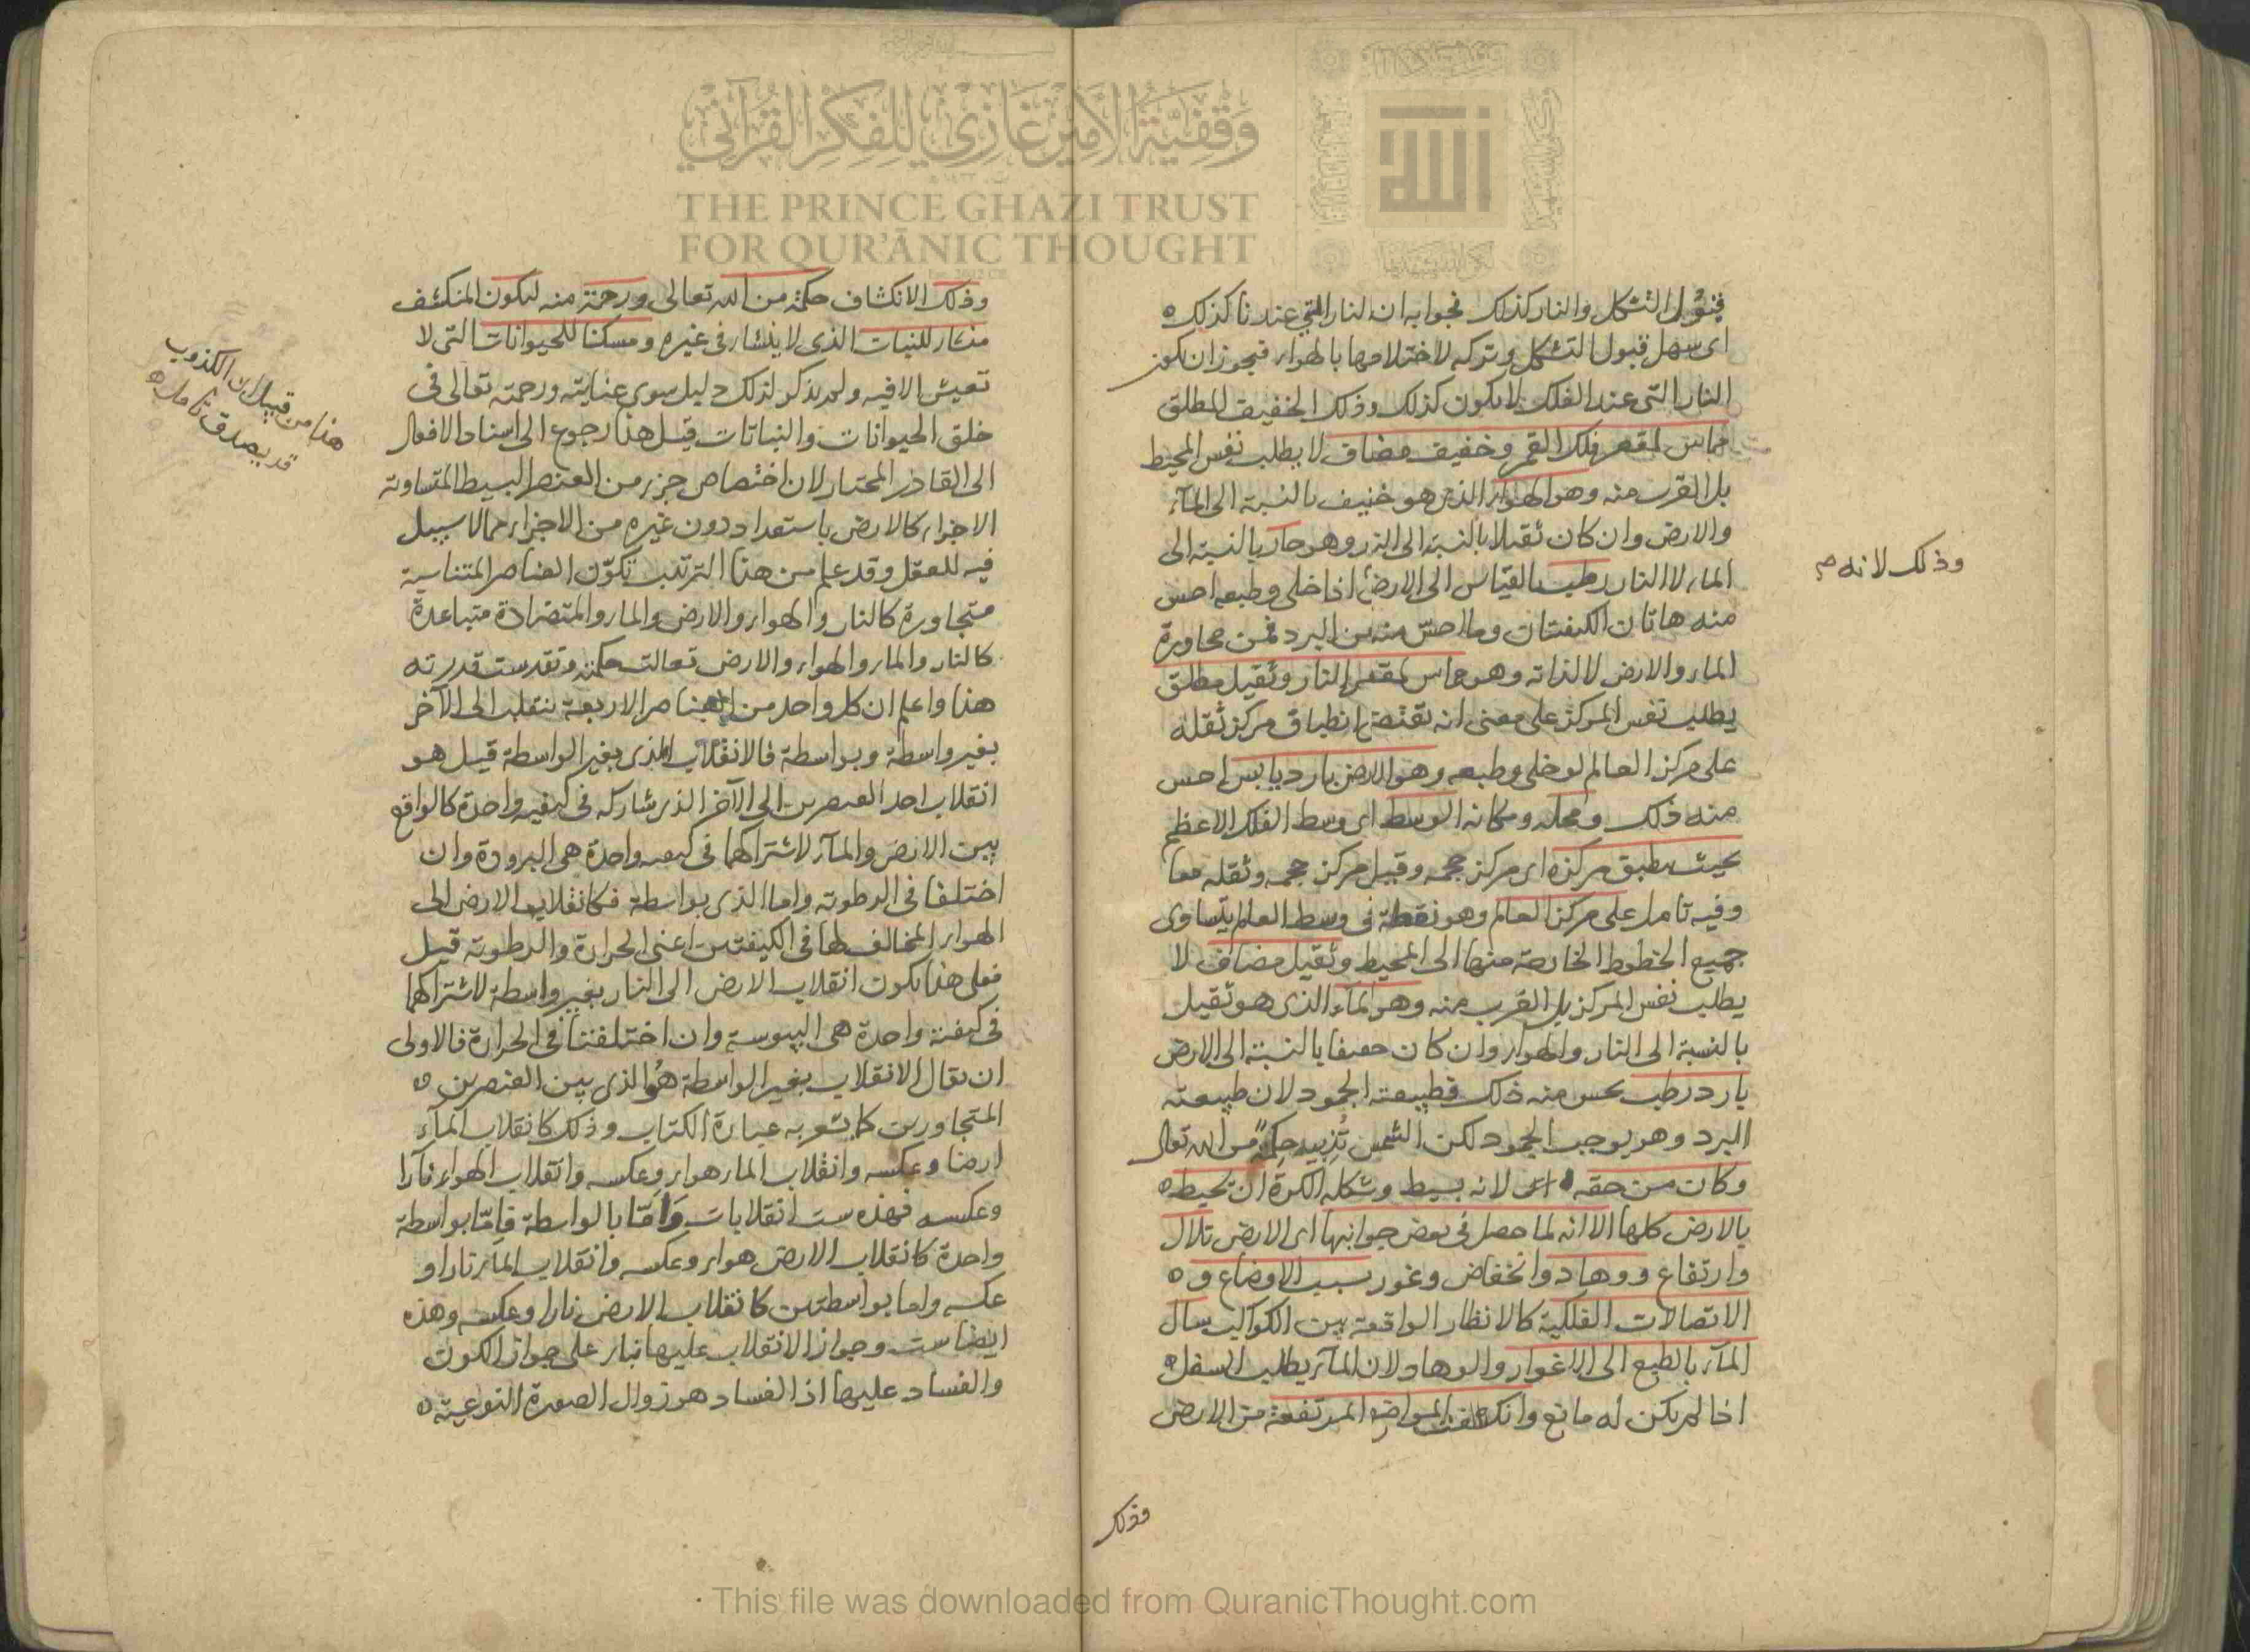 فيؤل التشكل والنار كذلك فجوابه ان النار التي عندنا كذلك
اى سهل قبول التشكل وتركه لاختلاطها بالهواء فيجوز ان تكون
النار التى عند الفلك لا يكون كذلك وذلك الخفيف المطلق
مماس لمقعر فلك القمر وخفيف مضاف لا يطلب نفس المحيط
بل القرب منه وهو الهواء الذى هو خفيف بالنسبة الى الماء
والارض وان كان ثقيلا بالنسبة الى النار وهو حار بالنسبة الى
الماء لا النار رطب بالقياس الى الارض اذا خلى وطبعه احس
منه هاتان الكيفيتان وما احس منه من البرد فمن مجاورة
الماء والارض لا لذاته وهو مماس لمقعر النار وثقيل مطلق
يطلب نفس المركز على معنى انه يقتضى انطباق مركز ثقله
على مركز العالم لو خلى وطبعه وهو الارض بارد يابس احس
منه ذلك ومحله ومكانه الوسط اى وسط الفلك الاعظم
بحيث ينطبق مركزه اى مركز حجمه وقيل مركز حجمه وثقله معا
وفيه تامل على مركز العالم وهو نقطة فى وسط العالم يتساوى
جميع الخطوط الخارجة منها الى المحيط وثقيل مضاف لا
يطلب نفس المركز بل القرب منه وهو الماء الذى هو ثقيل
بالنسبة الى النار والهواء وان كان خفيفا بالنسبة الى الارض
بارد رطب يحس منه ذلك فطبيعته الجمود لان طبيعته
البرد وهو يوجب الجمود لكن الشمس تذيبه حكمة من الله تعالى
وكان من حقه اى لانه بسيط وشكله الكرة ان يحيط
بالارض كلها الا انه لما حصل فى بعض جوانبها اى الارض تلال
وارتفاع ووهاد وانخفاض وغور بسبب الاوضاع و
الاتصالات الفلكية كالانظار الواقعة بين الكواكب سال
الماء بالطبع الى الاغوار والوهاد لان الماء يطلب السفل
اذا لم يكن له مانع وانكشفت المواضع المرتفعة من الارض
وذلك لانه
وذلك
وذلك الانكشاف حكمة من الله تعالى ورحمة منه ليكون المنكشف
منشاء للنبات الذى لا ينشاء فى غيره ومسكنا للحيوانات التى لا
تعيش الا فيه ولم يذكر لذلك دليل سوى عنايته ورحمته تعالى فى
خلق الحيوانات والنباتات قيل هذا رجوع الى اسناد الافعال
الى القادر المختار لان اختصاص جزء من العنصر البسيط المتساوية
الاجزاء كالارض باستعداد دون غيره من الاجزاء مما لا سبيل
فيه للعقل وقد علم من هذا الترتيب تكون العناصر المتناسبة
متجاورة كالنار والهواء والارض والماء والمتضادة متباعدة
كالنار والماء والهواء والارض تعالت حكمته وتقدست قدرته
هذا واعلم ان كل واحد من العناصر الاربعة ينقلب الى الآخر
بغير واسطة وبواسطة فالانقلاب الذى بغير الواسطة قيل هو
انقلاب احد العنصرين الى الآخر الذى شاركه فى كيفية واحدة كالواقع
بين الارض والماء لاشتراكهما فى كيفية واحدة هى البرودة وان
اختلفا فى الرطوبة واما الذى بواسطة فكانقلاب الارض الى
الهواء المخالف لها فى الكيفيتين اعنى الحرارة والرطوبة قيل
فعلى هذا يكون انقلاب الارض الى النار بغير واسطة لاشتراكهما
فى كيفية واحدة هى اليبوسة وان اختلفتا فى الحرارة فالاولى
ان يقال الانقلاب بغير الواسطة هو الذى بين العنصرين
المتجاورين كما يشعر به عبارة الكتاب وذلك كانقلاب الماء
ارضا وعكسه وانقلاب الماء هواء وعكسه وانقلاب الهواء نارا
وعكسه فهذه ست انقلابات واما بالواسطة فاما بواسطة
واحدة كانقلاب الارض هواء وعكسه وانقلاب الماء نارا و
عكسه واما بواسطتين كانقلاب الارض نارا وعكسه وهذه
ايضا ست وجواز الانقلاب عليها بناء على جواز الكون
والفساد عليها اذ الفساد هو زوال الصورة النوعية
هذا من قبيل ان الكذوب
قد يصدق تامل
وقفية الأمير غازي للفكر القرآني
THE PRINCE GHAZI TRUST
FOR QUR'ĀNIC THOUGHT
This file was downloaded from QuranicThought.com